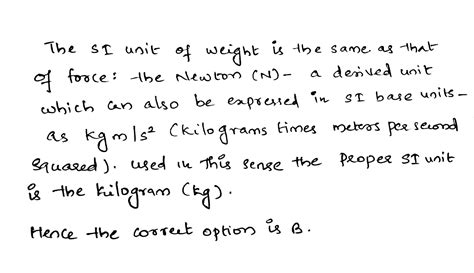 The SI unit of weight is the same as that
of force: the Newton (N) - a derived unit
which can also be expressed in SI base units -
as kgm/s² (kilograms times meters per second
squared). used in this sense the proper SI unit
is the kilogram (kg).
Hence the correct option is B.